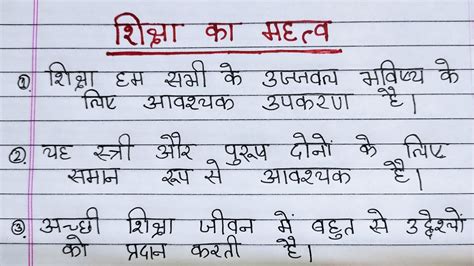 शिक्षा का महत्व
① शिक्षा हम सभी के उज्जवल भविष्य के
लिए आवश्यक उपकरण है।
② यह स्त्री और पुरूष दोनों के लिए
समान रूप से आवश्यक है।
③ अच्छी शिक्षा जीवन में बहुत से उद्देश्यों
को प्रदान करती है।